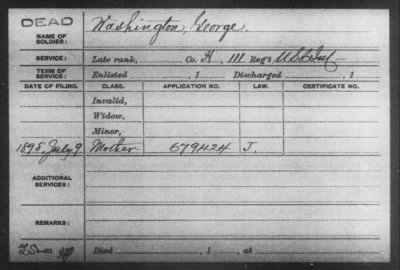 DEAD
NAME OF SOLDIER: Washington, George.
SERVICE: Late rank, Co. H, 111 Reg't U.S.C. Inf
TERM OF SERVICE: Enlisted , 1 Discharged , 1
DATE OF FILING. CLASS. APPLICATION NO. LAW. CERTIFICATE NO.
Invalid,
Widow,
Minor,
1898, July 9 Mother 679424 J.
ADDITIONAL SERVICES:
REMARKS:
Died , 1 , at